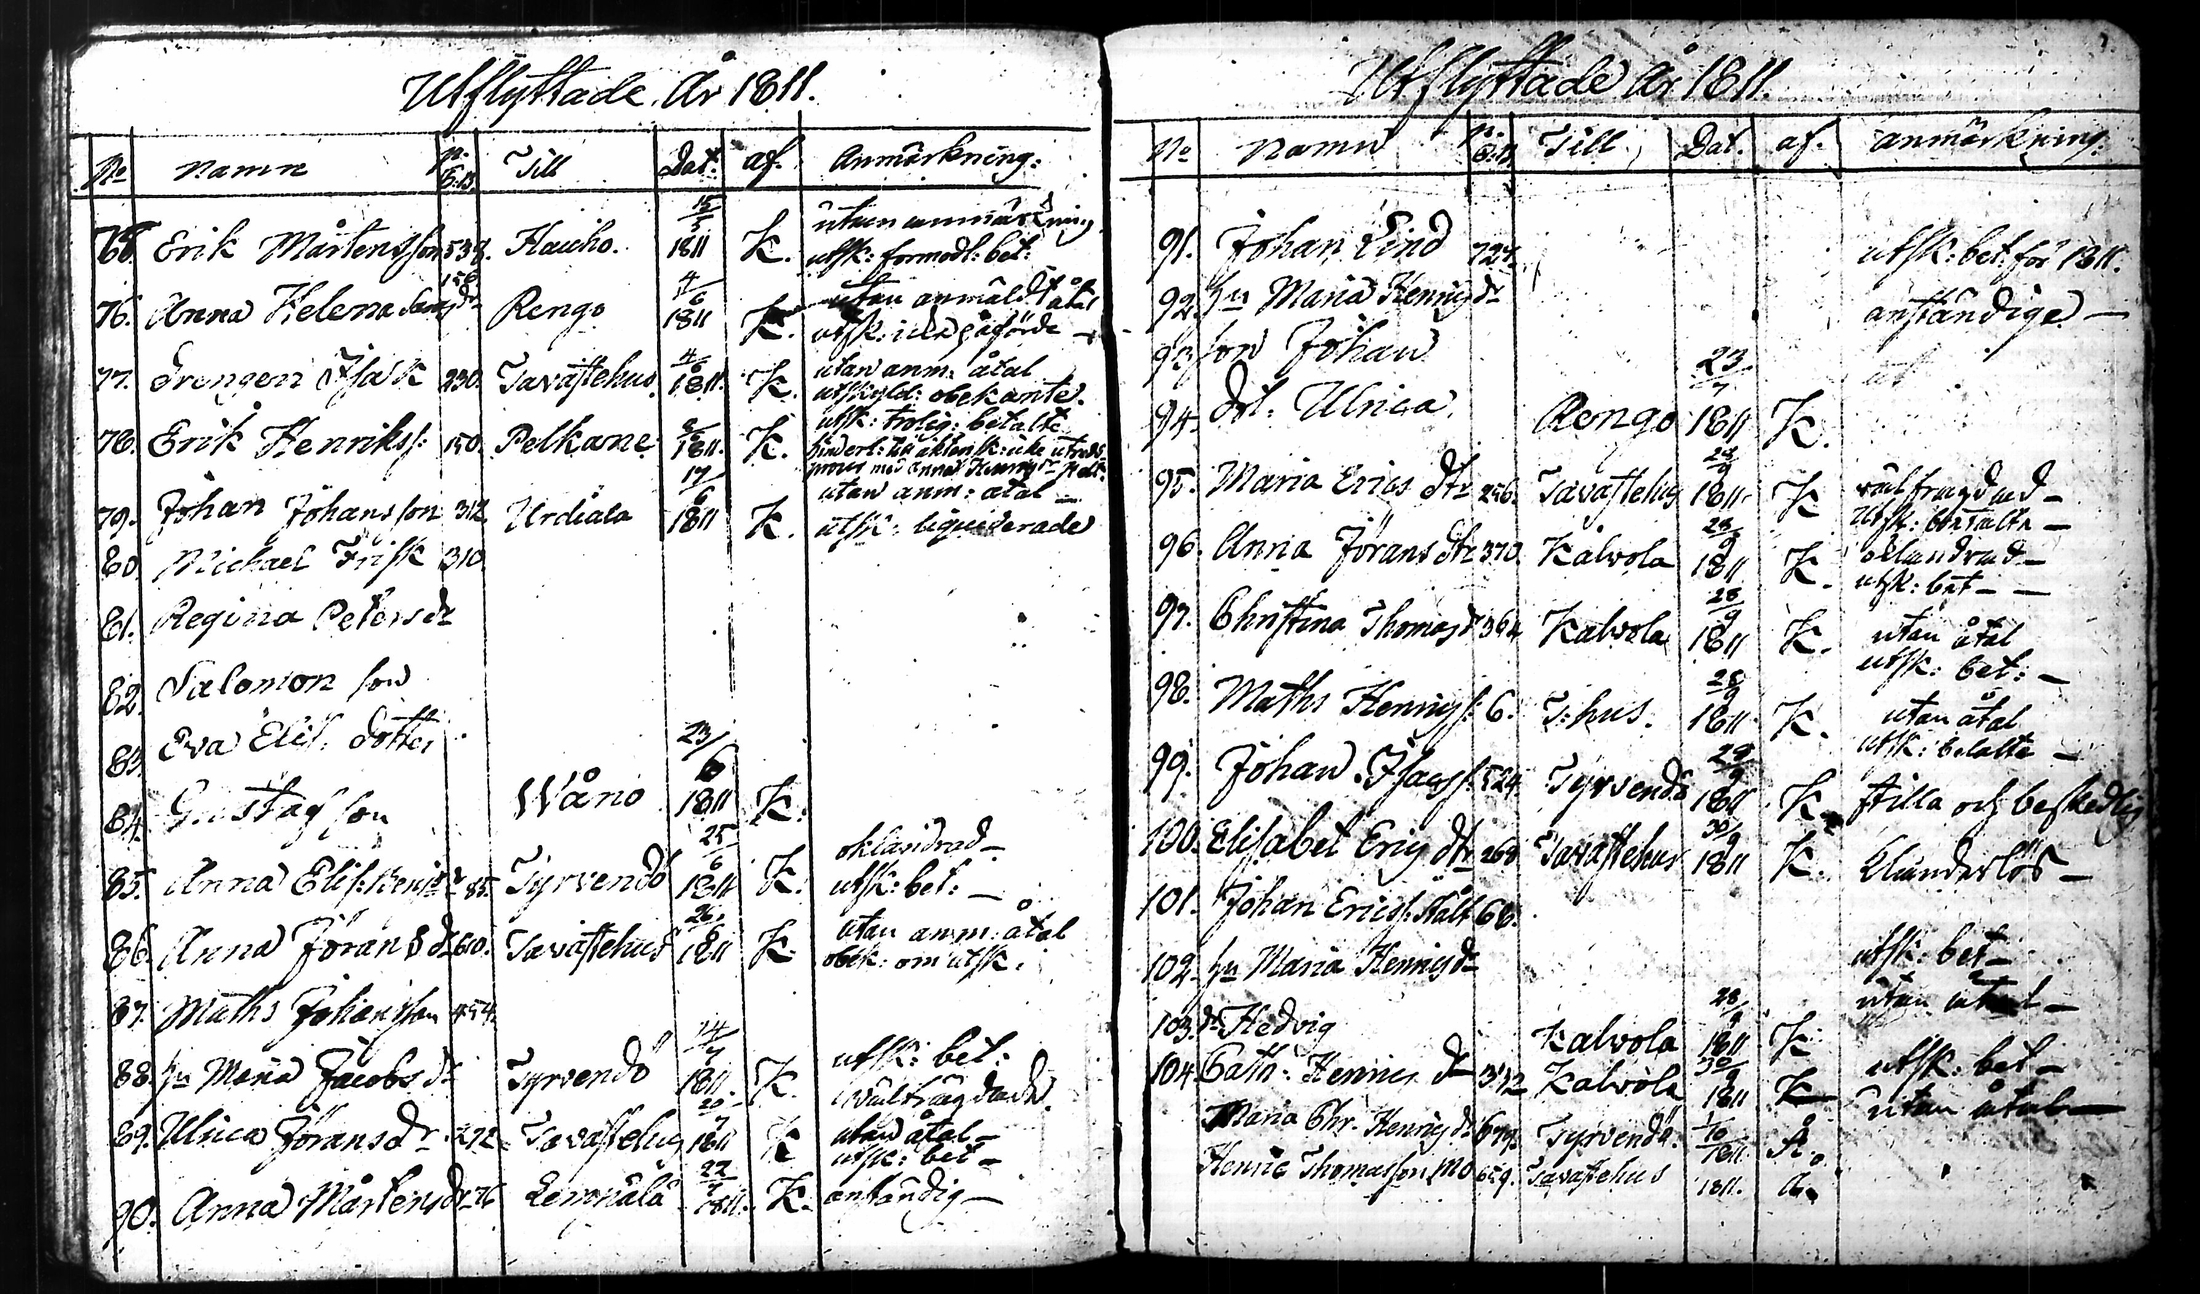 Utflyttade År 1811.
No Namn p. C.B. Till Dat. af. Anmärkning:
Erik Mårtensson 538. Hauho. 15/5 1811 K. utan anmärkning
utsk: formodl: bet:
76. Anna Helena Rengo 4/6 1811 K. utan anmäldt åtal
utsk: icke påförde —
77. Drengen Isak 230. Tavastehus 4/6 1811. K. utan anm. åtal
utskyld: obekante.
78. Erik Henrikss: 150. Pelkäne 8/6 1811. K. utsk: trolig: betalte
hinderl: till äktensk: icke
79. Johan Johansson 312. Urdiala 17/6 1811 K. utan anm: åtal —
utsk: liquiderade
80. Michael Frisk 310
81. Regina Petersdr
82. Salomon son
83. Eva Elis. dotter
84. Gustaf son Wånå 23/6 1811 K.
85. Anna Elis: Benjs dr 85. Tyrvendö 25/6 1811 K. oklandrad —
utsk: bet: —
86. Anna Jörans dr 610. Tavastehus 26/6 1811 K. utan anm: åtal
obek: om utsk.
87. Maths Johansson 454.
88. hu Maria Jacobs dr Tyrvendö 14/7 1811. K. utsk: bet:
välfrägdade.
89. Ulrica Jörans dr 272 Tavastehus 20/7 1811 K utan åtal —
utsk: bet —
90. Anna Mårtens dr 76 Lempälä 22/7 1811. K. anständig —
Utflyttade År 1811.
No Namn p. C.B. Till Dat. af. anmärkning.
91. Johan Lind 724. utsk: bet: för 1811.
92. hu Maria Henrics dr anständige —
93. son Johan
94. dot. Ulrica. Rengo 23/7 1811 K.
95. Maria Erics dtr 256. Tavastehus 1811. K välfrägdad —
utsk: betalte —
96. Anna Jörans dtr 370. Kalvola 1811 K. oklandrad —
utsk: bet — —
97. Christina Thomas dr 364 Kalvola 28/9 1811 K. utan åtal
utsk: bet: —
98. Maths Henrics: 6. T:hus. 28/9 1811 K. utan åtal
utsk: betalte —
99. Johan Isacs: 524. Tyrvendö 29/9 1811 K. stilla och beskedlig
100. Elisabet Erics dtr 268 Tavastehus 30/9 1811 K. klanderlös —
101. Johan Erics: Stålt 68.
102. hu Maria Henrics dr utsk: bet —
103. dr Hedvig Kalvola 28/9 1811 K utan åtal —
104. Cath: Henrics dr 342 Kalvola 30/9 1811 K utsk: bet —
utan åtal —
Maria Chr. Henrics dr 679. Tyrvendö. 1/10 1811. A.
Henric Thomasson 659. Tavastehus 1811.